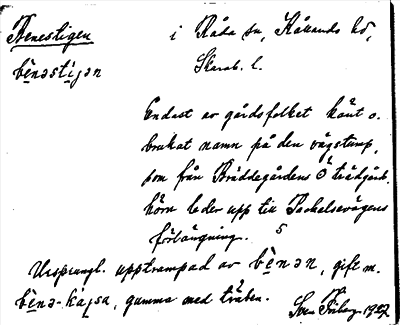 Benestigen i Råda sn, Kållands hd,
bènəstigən Skarab. l.
Endast av gårdsfolket känt o.
brukat namn på den vägstump,
som från Bräddegårdens Ö trädgårds-
hörn leder upp till Packelsevägens
förlängning. 5
Ursprungl. upptrampad av bènən, gift m.
bènə-kajsa, gumma med träben.
Sven 1927